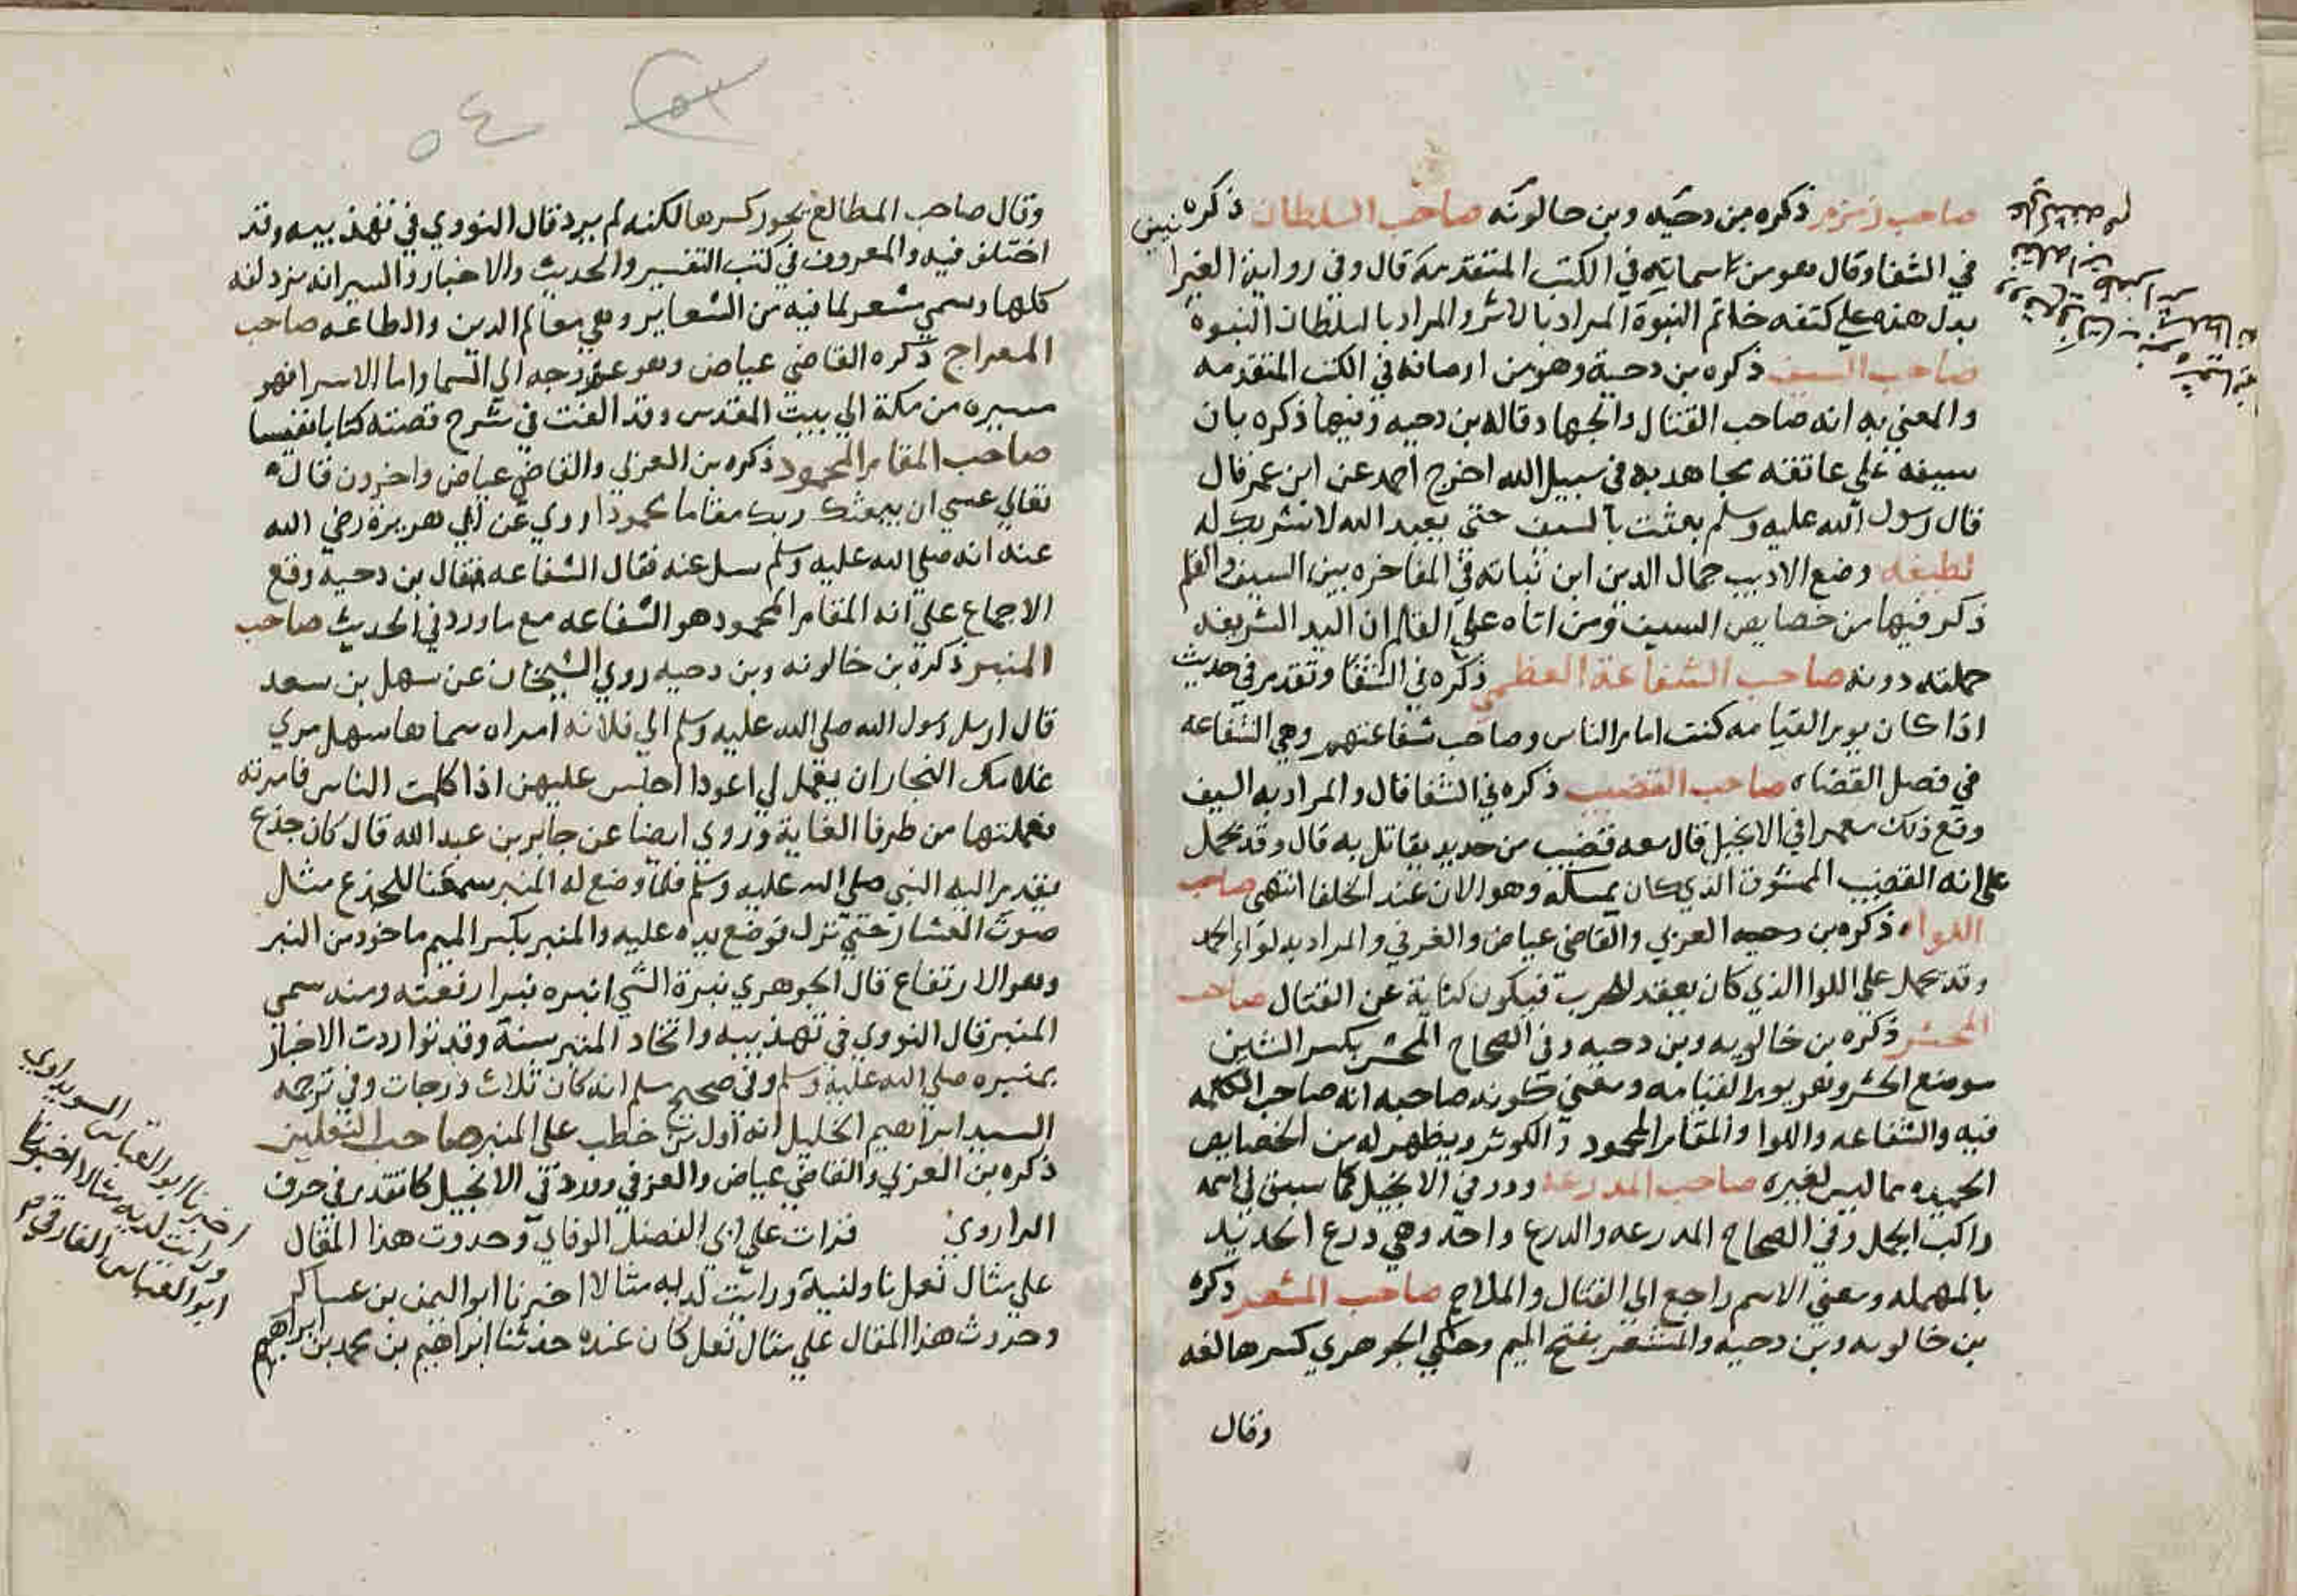 صاحب زمزم ذكره بن دحيه وبن خالويه صاحب السلطان ذكره
في الشفا وقال هو من اسمايه في الكتب المتقدمة قال وفي رواية
بدل هذه على كتفه خاتم النبوة المراد بالاثر والمراد بالسلطان النبوة
صاحب السيف ذكره بن دحية وهو من اوصافه في الكتب المتقدمه
والمعني به انه صاحب القتال والجهاد وقاله بن دحيه وفيها ذكره بان
سيفه على عاتقه يجاهد به في سبيل الله اخرج احمد عن ابن عمر قال
قال رسول الله عليه وسلم بعثت بالسيف حتى يعبد الله لا شريك له
لطيفه وضع الاديب جمال الدين ابن نباته في المفاخره بين السيف والقلم
ذكر فيها من خصايص السيف ومن اتاه على القلم ان اليد الشريفه
حملته دونه صاحب الشفاعة العظمي ذكره في الشفا وتقدم في حديث
اذا كان يوم القيامه كنت امام الناس وصاحب شفاعتهم وهي الشفاعه
في فصل القضاء صاحب القضيب ذكره في الشفا قال والمراد به السيف
وقع ذلك مفسرا في الانجيل قال معه قضيب من حديد يقاتل به قال وقد يحمل
على انه القضيب الممشوق الذي كان يمسكه وهو الان عند الخلفا انتهى صاحب
اللواء ذكره بن دحيه العزفي والقاضي عياض والعزفي والمراد به لواء الحمد
وقد يحمل على اللوا الذي كان يعقد للحرب فيكون كناية عن القتال صاحب
المحشر ذكره بن خالويه وبن دحيه وفي الصحاح المحشر بكسر الشين
موضع الحشر وهو يوم القيامه ومعني كونه صاحبه انه صاحب الكلمه
فيه والشفاعه واللوا والمقام المحمود والكوثر ويظهر له من الخصايص
الحميده ما ليس لغيره صاحب المدرعه ورد في الانجيل كما سبق في اسمه
راكب الجمل وفي الصحاح المدرعه والدرع واحد وهي درع الحديد
بالمهمله ومعني الاسم راجع الي القتال والملاحم صاحب المشعر ذكره
بن خالويه وبن دحيه والمشعر بفتح الميم وحكي الجوهري كسرها لغه
وقال
وقال صاحب المطالع يجوز كسرها لكنه لم يرد قال النووي في تهذيبه وقد
اختلف فيه والمعروف في كتب التفسير والحديث والاخبار والسير انه مزدلفه
كلها وسمي مشعر لما فيه من الشعاير وهي معالم الدين والطاعه صاحب
المعراج ذكره القاضي عياض وهو عروجه الي السما واما الاسرا فهو
مسيره من مكة الي بيت المقدس وقد الفت في شرح قصته كتابا نفيسا
صاحب المقام المحمود ذكره بن العزفي والقاضي عياض واخرون قال
تعالي عسي ان يبعثك ربك مقاما محمودا روي عن ابي هريرة رضي الله
عنه انه صلى الله عليه وسلم سل عنه فقال الشفاعه فقال بن دحيه وقع
الاجماع على انه المقام المحمود هو الشفاعه مع ما ورد في الحديث صاحب
المنبر ذكره بن خالويه وبن دحيه روي الشيخان عن سهل بن سعد
قال ارسل رسول الله صلى الله عليه وسلم الي فلانه امراه سماها سهل مري
غلامك النجار ان يعمل لي اعودا اجلس عليهن اذا كلمت الناس فامرته
فعملتها من طرفا الغابة وروي ايضا عن جابر بن عبد الله قال كان جذع
يقدم اليه النبي صلى الله عليه وسلم فلما وضع له المنبر سمعنا للجذع مثال
صوت العشار حتى نزل فوضع يده عليه والمنبر بكسر الميم ماخوذ من النبر
وهو الارتفاع قال الجوهري نبرة الشي انبره نبرا رفعته ومنه سمي
المنبر قال النووي في تهذيبه واتخاد المنبر سنة وقد تواردت الاخبار
بمنبره صلى الله عليه وسلم وفي صحيح مسلم انه كان ثلاث درجات وفي ترجمه
السيد ابراهيم الخليل انه اول من خطب على المنبر صاحب النعلين
ذكره بن العزفي والقاضي عياض والعزفي وورد في الانجيل كما تقدم في حرف
الراروي قرات علي ابي الفضل الوفاي وحدوت هذا المقال
علي مثال نعل ناولنية ورايت لديه مثالا اخبرنا ابو اليمن بن عساكر
وحدوت هذا المقال علي مثال نعل كان عنده حدثنا ابراهيم بن محمد بن ابراهيم
اخبرنا ابو العباس السويداوي
ورايت لديه مثالا اخبرنا
ابو العباس الفارقي